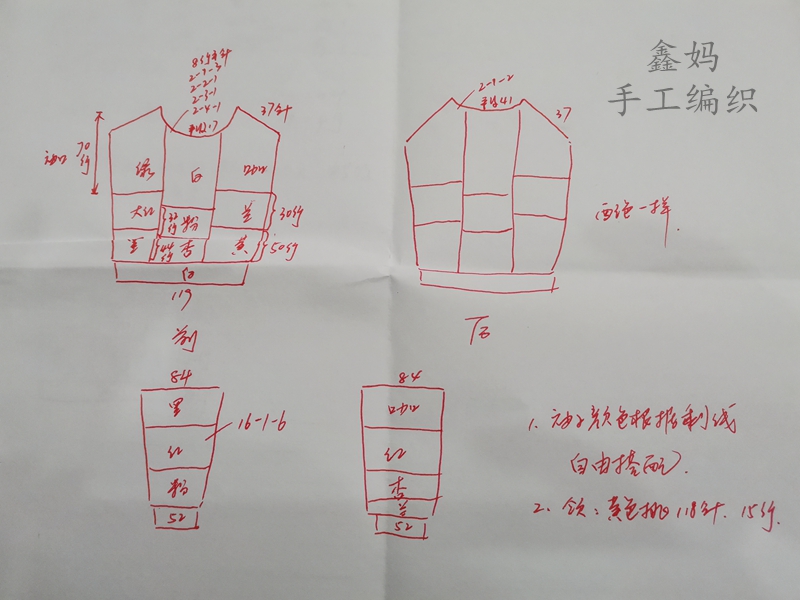 鑫妈
手工编织
2-1-3
2-2-1
2-3-1
2-4-1
平收17
37针
袖口
70行
绿
白
咖
大红
32行
粉
兰
30行
黑
44行
杏
黄
50行
白
119
前
2-1-2
平收41
37
配色一样.
后
84
黑
红
粉
52
16-1-6
84
咖
红
杏
兰
52
1. 袖子颜色根据剩线
自由搭配.
2. 领: 黄色挑118针. 15行.